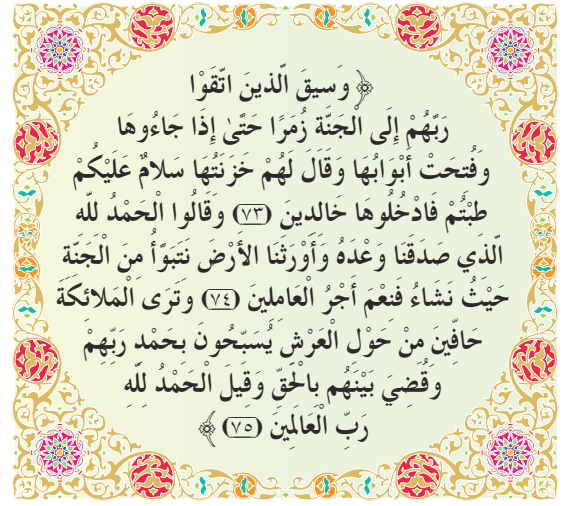 ﴿ وَسِيقَ الَّذِينَ اتَّقَوْا
رَبَّهُمْ إِلَى الْجَنَّةِ زُمَرًا حَتَّىٰ إِذَا جَاءُوهَا
وَفُتِحَتْ أَبْوَابُهَا وَقَالَ لَهُمْ خَزَنَتُهَا سَلَامٌ عَلَيْكُمْ
طِبْتُمْ فَادْخُلُوهَا خَالِدِينَ (٧٣) وَقَالُوا الْحَمْدُ لِلَّهِ
الَّذِي صَدَقَنَا وَعْدَهُ وَأَوْرَثَنَا الأرْضَ نَتَبَوَّأُ مِنَ الْجَنَّةِ
حَيْثُ نَشَاءُ فَنِعْمَ أَجْرُ الْعَامِلِينَ (٧٤) وَتَرَى الْمَلائِكَةَ
حَافِّينَ مِنْ حَوْلِ الْعَرْشِ يُسَبِّحُونَ بِحَمْدِ رَبِّهِمْ
وَقُضِيَ بَيْنَهُم بِالْحَقِّ وَقِيلَ الْحَمْدُ لِلَّهِ
رَبِّ الْعَالَمِينَ (٧٥) ﴾